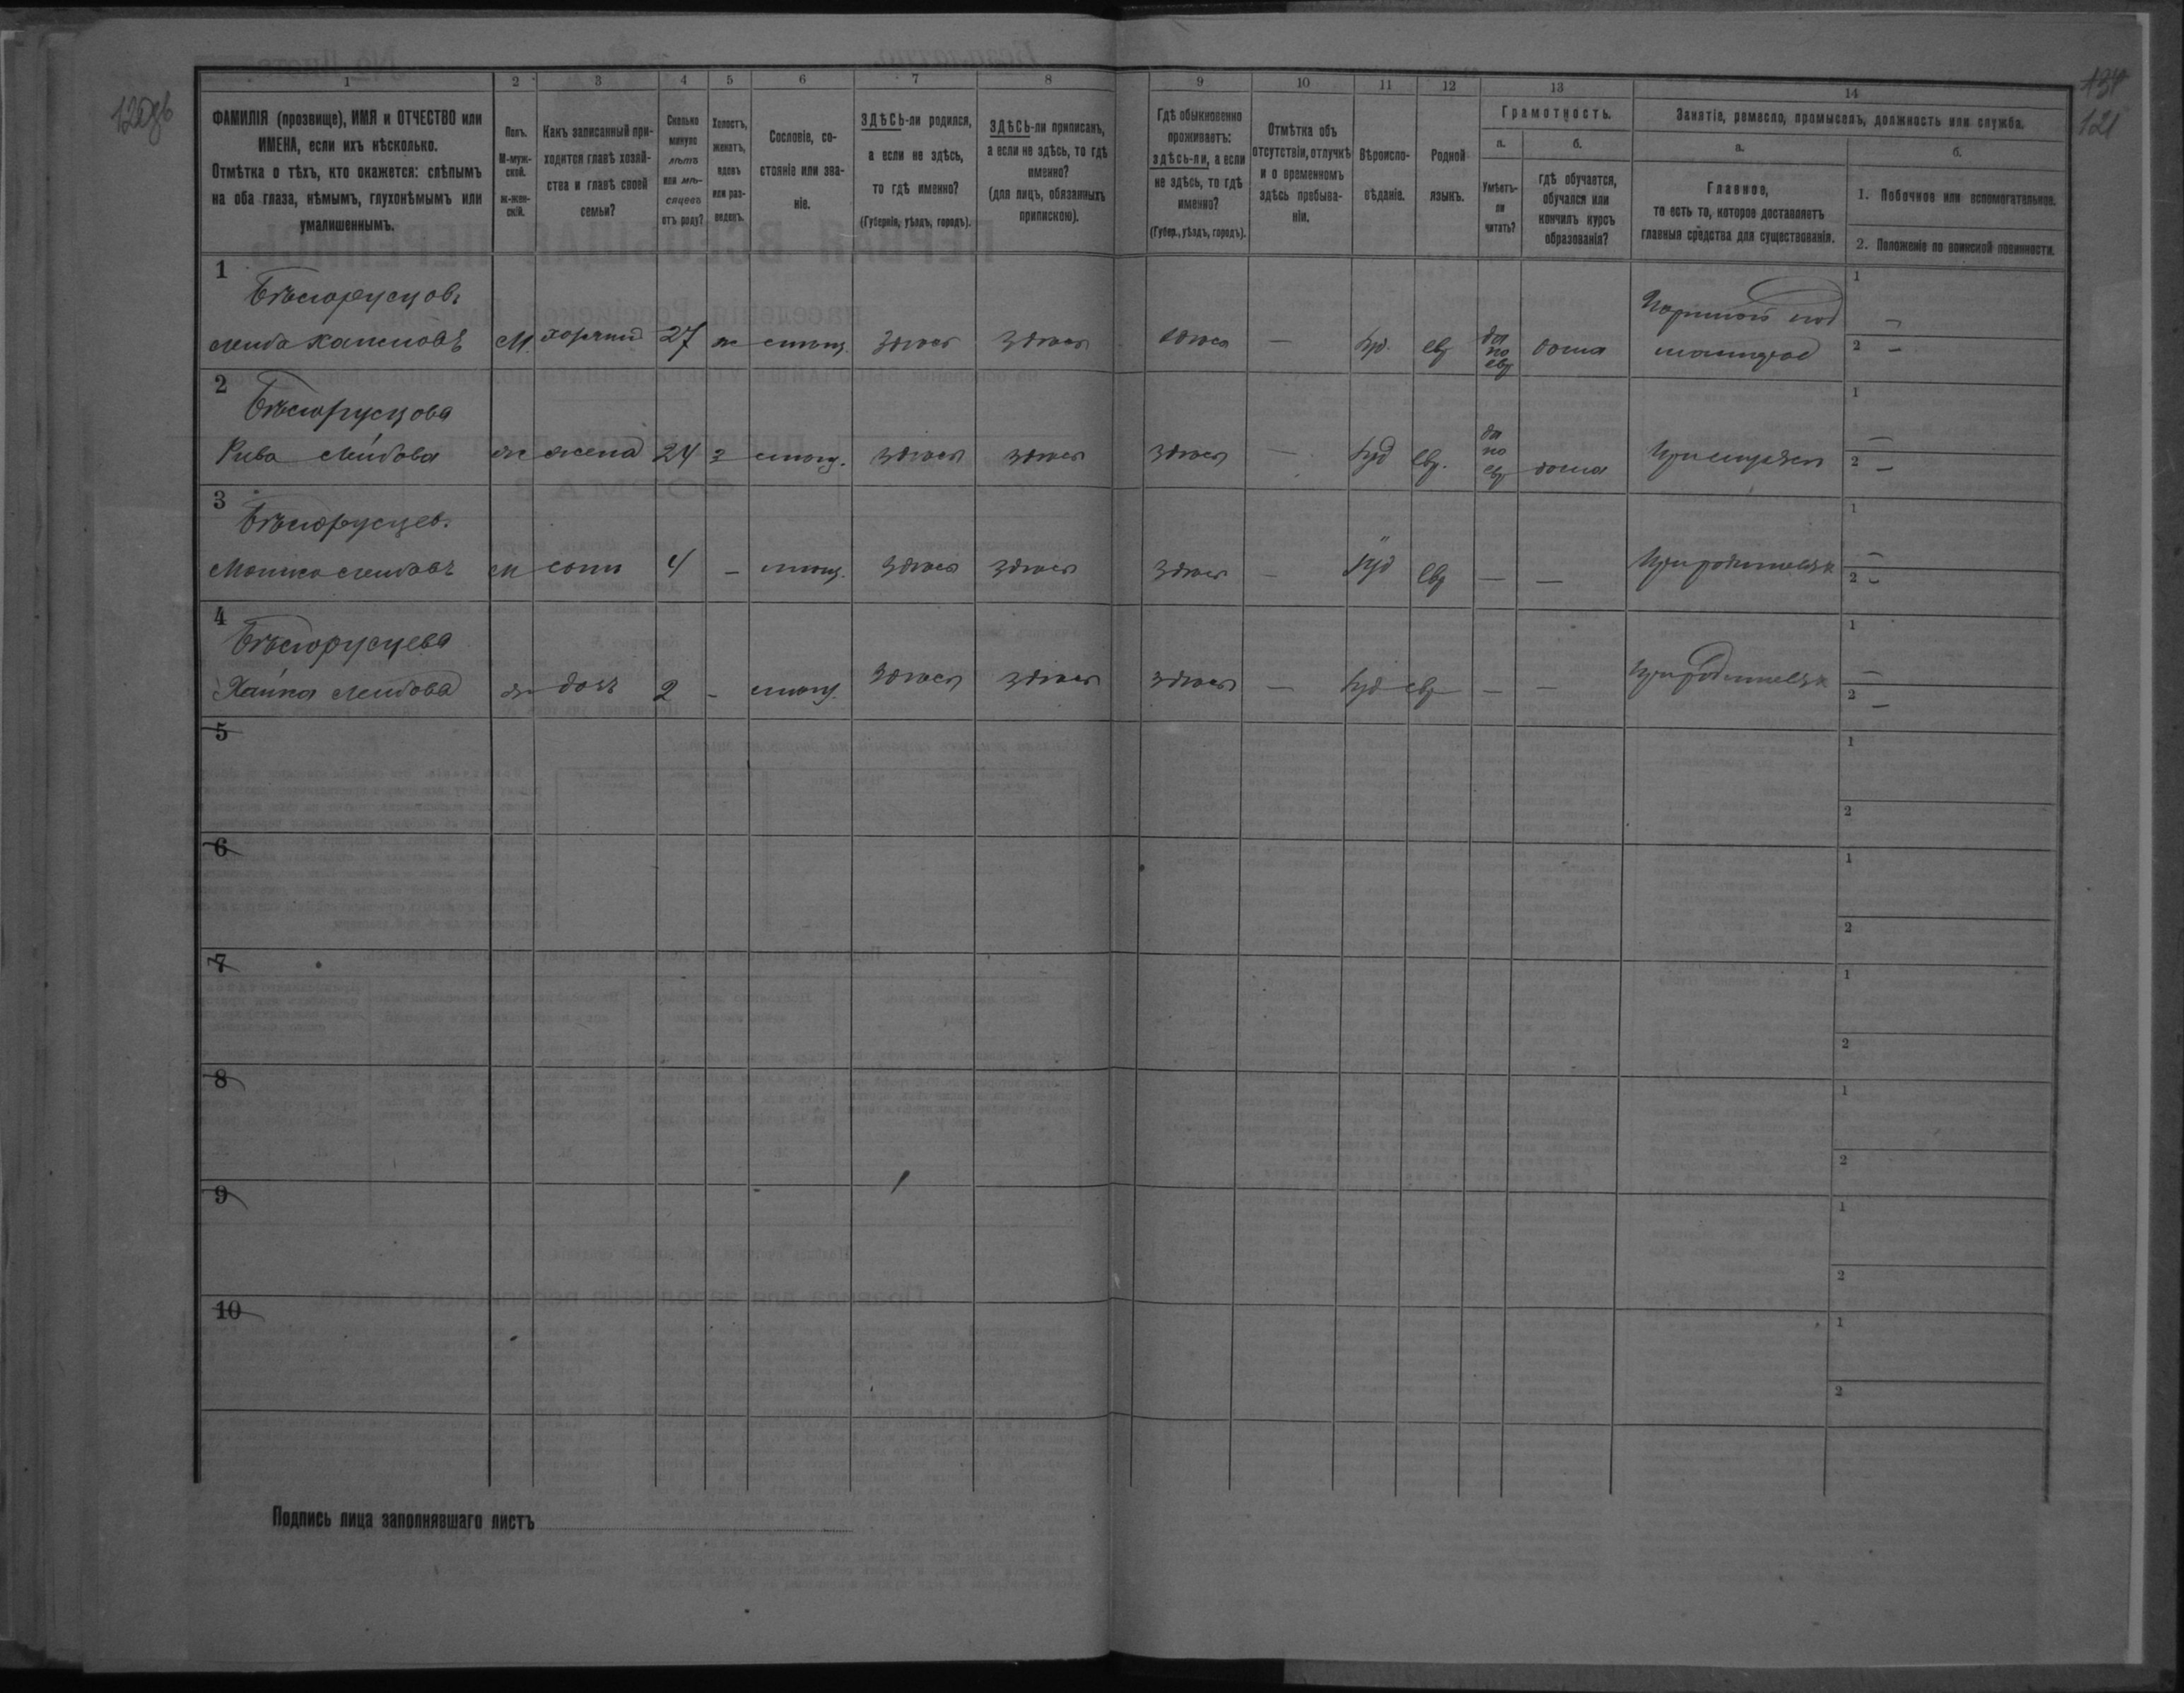 120об
134
121
1 2 3 4 5 6 7 8 9 10 11 12 13 14
ФАМИЛІЯ (прозвище), ИМЯ и ОТЧЕСТВО или
ИМЕНА, если ихъ нѣсколько.
Отмѣтка о тѣхъ, кто окажется: слѣпымъ
на оба глаза, нѣмымъ, глухонѣмымъ или
умалишеннымъ.
Полъ.
М-муж-
ской.
ж-жен-
скій.
Какъ записанный при-
ходится главѣ хозяй-
ства и главѣ своей
семьи?
Сколько
минуло
лѣтъ
или мѣ-
сяцевъ
отъ роду?
Холостъ,
женатъ,
вдовъ
или раз-
веденъ.
Сословіе, со-
стояніе или зва-
ніе.
ЗДѢСЬ-ли родился,
а если не здѣсь,
то гдѣ именно?
(Губернія, уѣздъ, городъ).
ЗДѢСЬ-ли приписанъ,
а если не здѣсь, то гдѣ
именно?
(для лицъ, обязанныхъ
припискою).
Гдѣ обыкновенно
проживаетъ:
здѣсь-ли, а если
не здѣсь, то гдѣ
именно?
(Губер., уѣздъ, городъ).
Отмѣтка объ
отсутствіи, отлучкѣ
и о временномъ
здѣсь пребыва-
ніи.
Вѣроиспо-
вѣданіе.
Родной
языкъ.
Грамотность.
а.
Умѣетъ-
ли
читать?
б.
гдѣ обучается,
обучался или
кончилъ курсъ
образованія?
Занятіе, ремесло, промыселъ, должность или служба.
а.
Главное,
то есть то, которое доставляетъ
главныя средства для существованія.
б.
1. Побочное или вспомогательное.
2. Положеніе по воинской повинности.
1
Бѣлорусцовъ
Лейба М 27 ж здѣсь здѣсь здѣсь — іуд. евр да по евр дома
1 —
2 —
2
Бѣлорусцова
Рива Лейбова ж жена 24 з здѣсь здѣсь здѣсь — іуд евр. да по евр дома При мужѣ
1 —
2 —
3
Бѣлорусцев.
Лейбовъ М сынъ 4 – здѣсь здѣсь здѣсь — іуд евр — — При родителяхъ
1 —
2 —
4
Бѣлорусцева
Хайка Лейбова ж дочь 2 - здѣсь здѣсь здѣсь — іуд евр — — При родителяхъ
1 —
2 —
5
1
2
6
1
2
7
1
2
8
1
2
9
1
2
10
1
2
Подпись лица заполнявшаго листъ